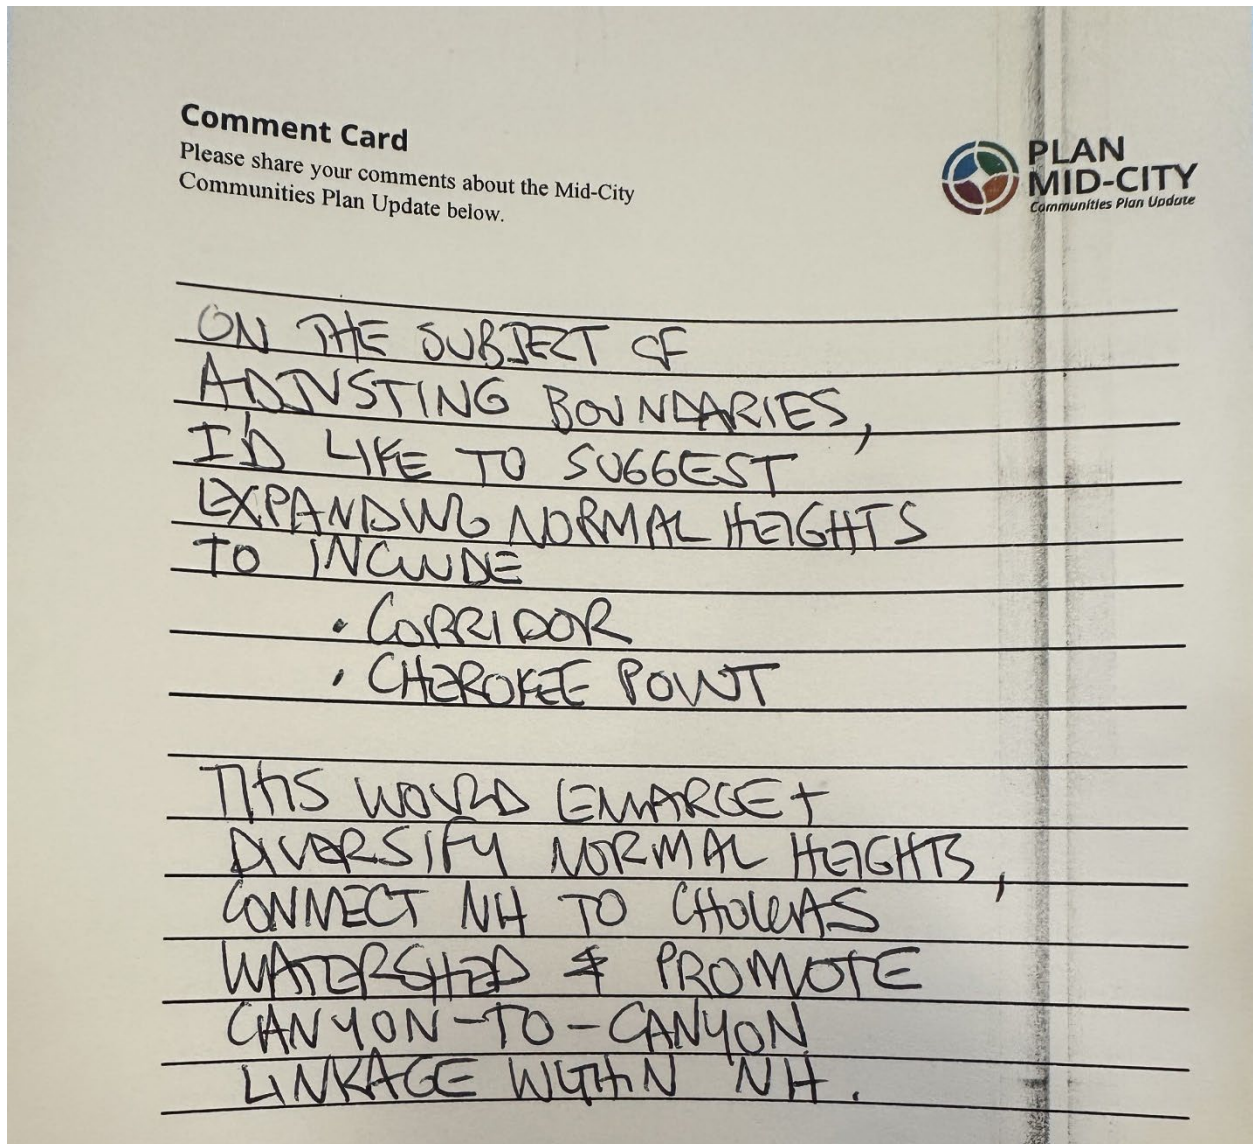 Comment Card
Please share your comments about the Mid-City
Communities Plan Update below.
PLAN
MID-CITY
Communities Plan Update
ON THE SUBJECT OF
ADJUSTING BOUNDARIES,
I'D LIKE TO SUGGEST
EXPANDING NORMAL HEIGHTS
TO INCLUDE
• CORRIDOR
• CHEROKEE POINT
THIS WOULD ENLARGE +
DIVERSIFY NORMAL HEIGHTS,
CONNECT NH TO CHOLLAS
WATERSHED & PROMOTE
CANYON-TO-CANYON
LINKAGE WITHIN NH.